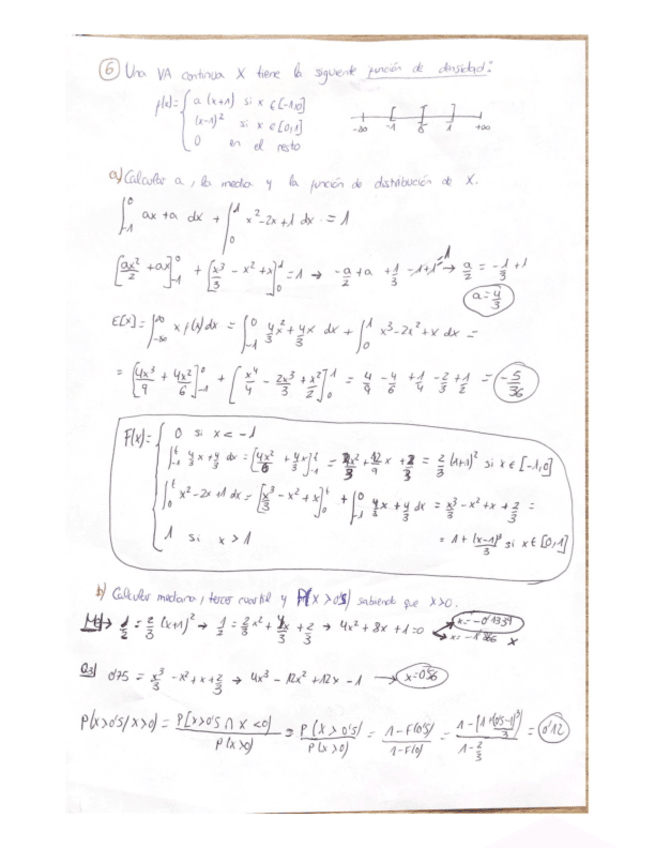 6 Una VA continua X tiene la siguiente función de densidad:
f(x)= { a (x+1) si x ∈[-1,0]
(x-1)² si x ∈ [0,1]
0 en el resto
-∞ -1 0 1 +∞
a) Calcular a, la media y la función de distribución de X.
∫₋₁⁰ ax+a dx + ∫₀¹ x²-2x+1 dx = 1
[ax²/2 + ax]₋₁⁰ + [x³/3 - x² + x]₀¹ = 1 → -a/2 + a + 1/3 - 1 + 1 = 1 → a/2 = -1/3 + 1
a = 4/3
E[x] = ∫₋∞^∞ x f(x) dx = ∫₋₁⁰ 4/3 x² + 4/3 x dx + ∫₀¹ x³-2x²+x dx =
= [4x³/9 + 4x²/6]₋₁⁰ + [x⁴/4 - 2x³/3 + x²/2]₀¹ = 4/9 - 4/6 + 1/4 - 2/3 + 1/2 = -5/36
F(x) = { 0 si x < -1
∫₋₁ᵗ 4/3 x + 4/3 dx = [4x²/6 + 4/3 x]₋₁ᵗ = 2x²/3 + 12/9 x + 2/3 = 2/3 (x+1)² si x ∈ [-1,0]
∫₀ᵗ x²-2x+1 dx = [x³/3 - x² + x]₀ᵗ + ∫₋₁⁰ 4/3 x + 4/3 dx = x³/3 - x² + x + 2/3 =
= 1 + (x-1)³/3 si x ∈ [0,1]
1 si x > 1
b) Calcular mediana, tercer cuartil y P(X > 0'5) sabiendo que x>0.
Me → 1/2 = 2/3 (x+1)² → 1/2 = 2/3 x² + 4/3 x + 2/3 → 4x² + 8x + 1 = 0
x = -0'1339
x = -1'866 x
Q3 0'75 = x³/3 - x² + x + 2/3 → 4x³ - 12x² + 12x - 1 → x = 0'56
P(x>0'5/x>0) = P[x>0'5 ∩ x<0]/P(x>0) = P(x>0'5)/P(x>0) = 1-F(0'5)/1-F(0) = 1-[1+(0'5-1)³/3]/1-2/3 = 0'12